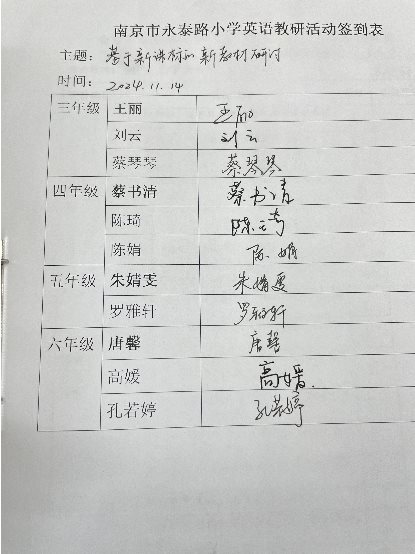 南京市永泰路小学英语教研活动签到表
主题：基于新课标的新教材研讨
时间：2024.11.14
三年级 王丽 王丽
刘云 刘云
蔡琴琴 蔡琴琴
四年级 蔡书清 蔡书清
陈琦 陈琦
陈娟 陈娟
五年级 朱婧雯 朱婧雯
罗雅轩 罗雅轩
六年级 唐馨 唐馨
高媛 高媛
孔若婷 孔若婷